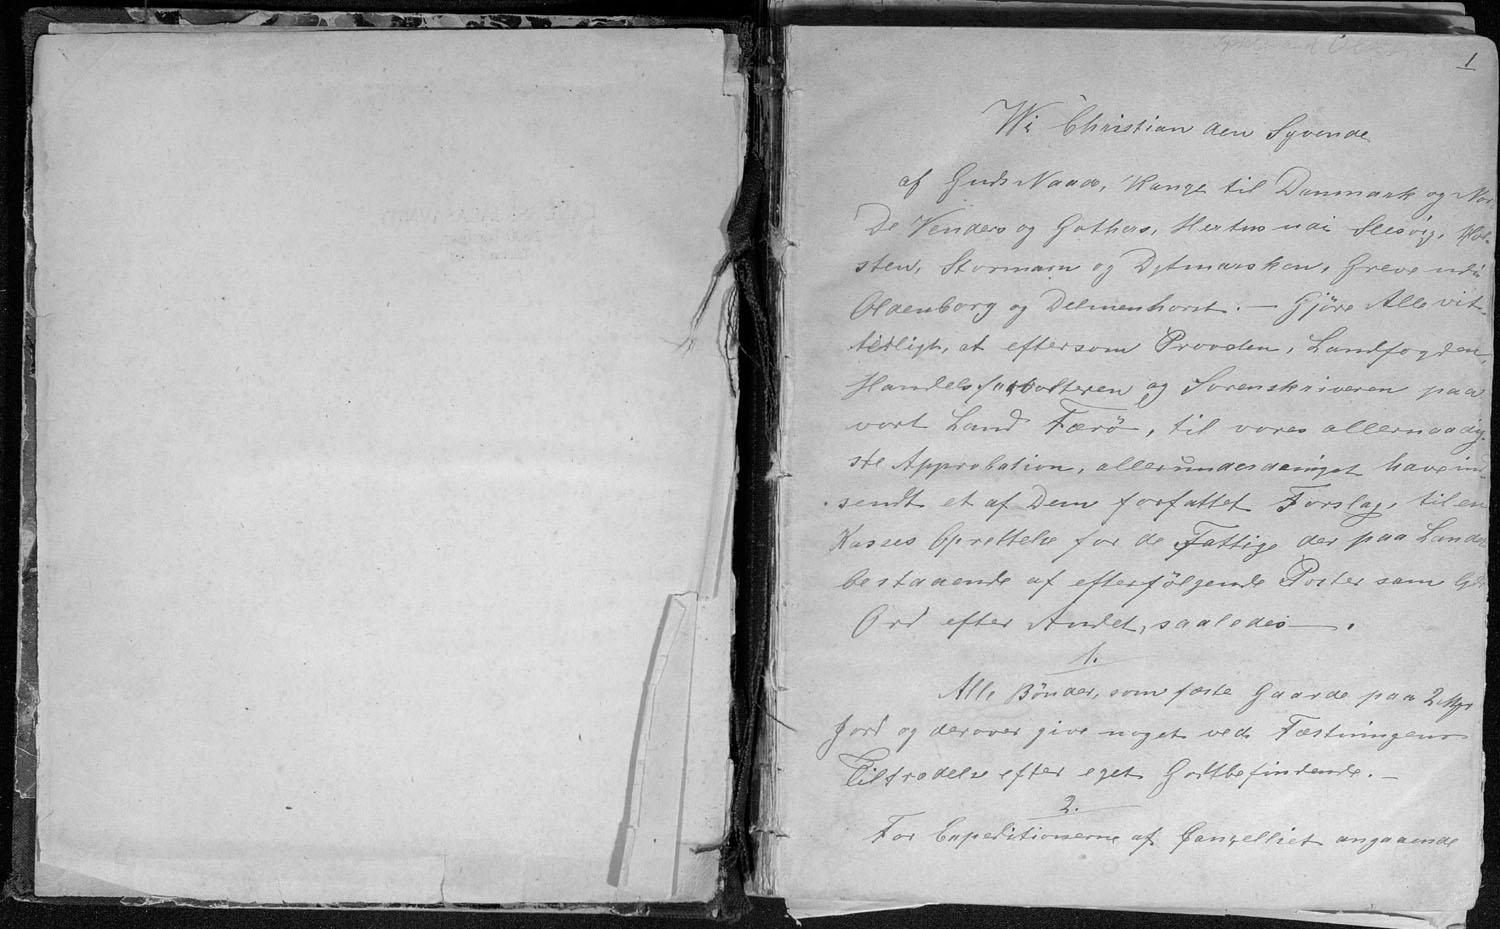 1
Wi Christian den Syvende
af Guds Naade, Konge til Danmark og Nor-
De Venders og Gothers, Hertug udi Slesvig, Hol-
sten, Stormarn og Dytmarsken, Greve udi
Oldenborg og Delmenhorst. — Gjöre Alle vit-
terligt, at eftersom Provsten, Landfogden,
Handelsforvalteren og Sorenskriveren paa
vort Land Færö, til vores allernaadig-
ste Approbation, allerunderdanigst have ind-
sendt et af Dem forfattet Forslag, til en
Kasses Oprettelse for de Fattige der paa Landet
bestaaende af efterfölgende Poster som
Ord efter Andet, saaledes —.
1.
Alle Bönder, som fæste Gaarde paa 2 Mrk
Jord og derover give noget ved Fæstningens
Tiltrædelse efter eget Godtbefindende. —
2.
For Expeditionerne af Cancelliet angaaende